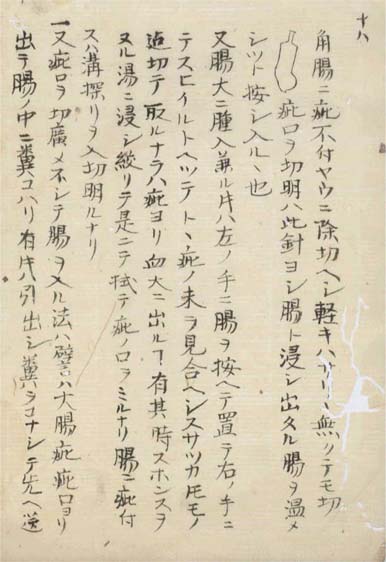 十八
角腸ニ疵不付ヤウニ除切ヘシ軽キハ無クテモ切
疵口ヲ切明ハ此針ヨシ腸ト浸シ出タル腸ヲ温メ
シツト按シ入ルヽ也
又腸大ニ腫入兼ル片ハ左ノ手ニ腸ヲ按ヘテ置テ右ノ手ニ
テスヒイルトヘツテトヽ疵ノ末ヲ見合ヘシスサツカ
迠切テ取ルナラハ疵ヨリ血大ニ出ルヿ有其時スホンスヲ
ヌル湯ニ浸シ絞リテ是ニテ拭テ疵ノ口ヲミルナリ腸ニ疵付
スハ溝探リヲ入切明ルナリ
一又疵口ヲ切廣メネシテ腸ヲ入ル法ハ譬ハ大腸疵疵口ヨリ
出テ腸ノ中ニ糞コハリ有片ハ引出シ糞ヲコナシテ先ヘ送